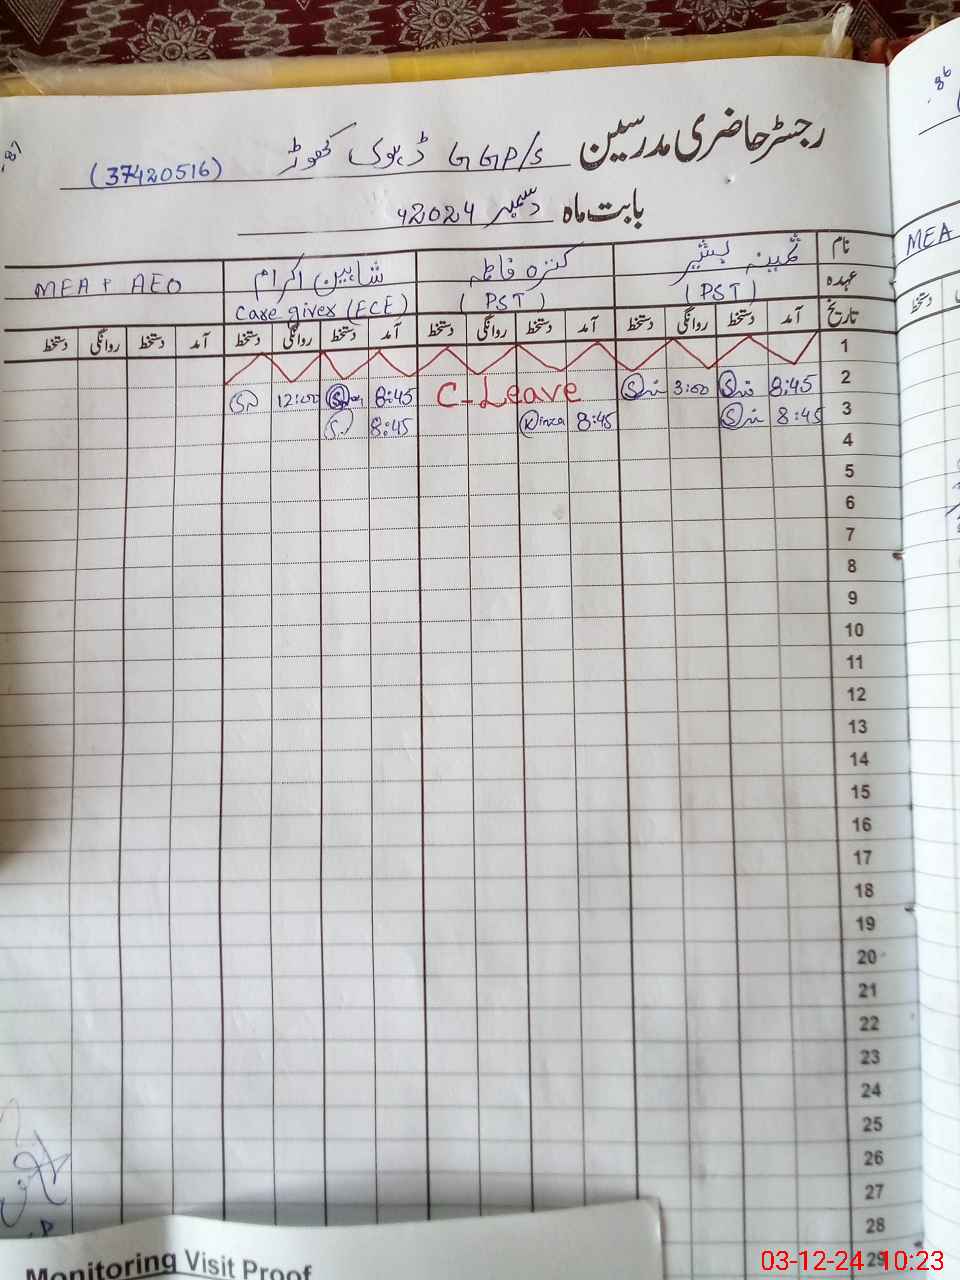 رجسٹر حاضری مدرسین GGP/S ڈہوک کھوڑ (37420516)
بابت ماہ دسمبر 2024ء
نام ثمینہ بشیر کنزہ فاطمہ شاہین اکرام MEA + AEO
عہدہ (PST) (PST) Care giver (ECE)
تاریخ آمد دستخط روانگی دستخط آمد دستخط روانگی دستخط آمد دستخط روانگی دستخط آمد دستخط روانگی دستخط
1
2 8:45 3:00 C-Leave 8:45 12:00
3 8:45 8:45 Kinza 8:45
4
5
6
7
8
9
10
11
12
13
14
15
16
17
18
19
20
21
22
23
24
25
26
27
28
29
MEA
دستخط
Monitoring Visit Proof
03-12-24 10:23